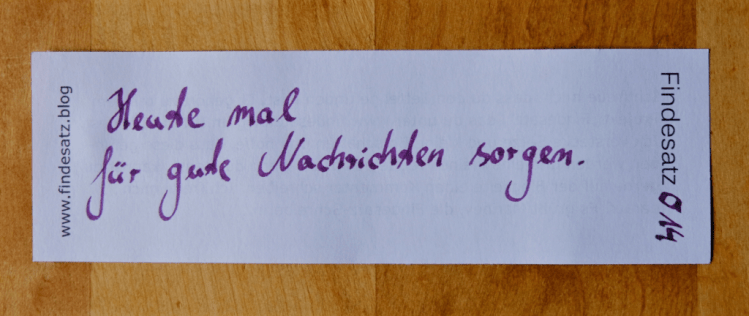 www.findesatz.blog
Heute mal
für gute Nachrichten sorgen.
Findesatz 014